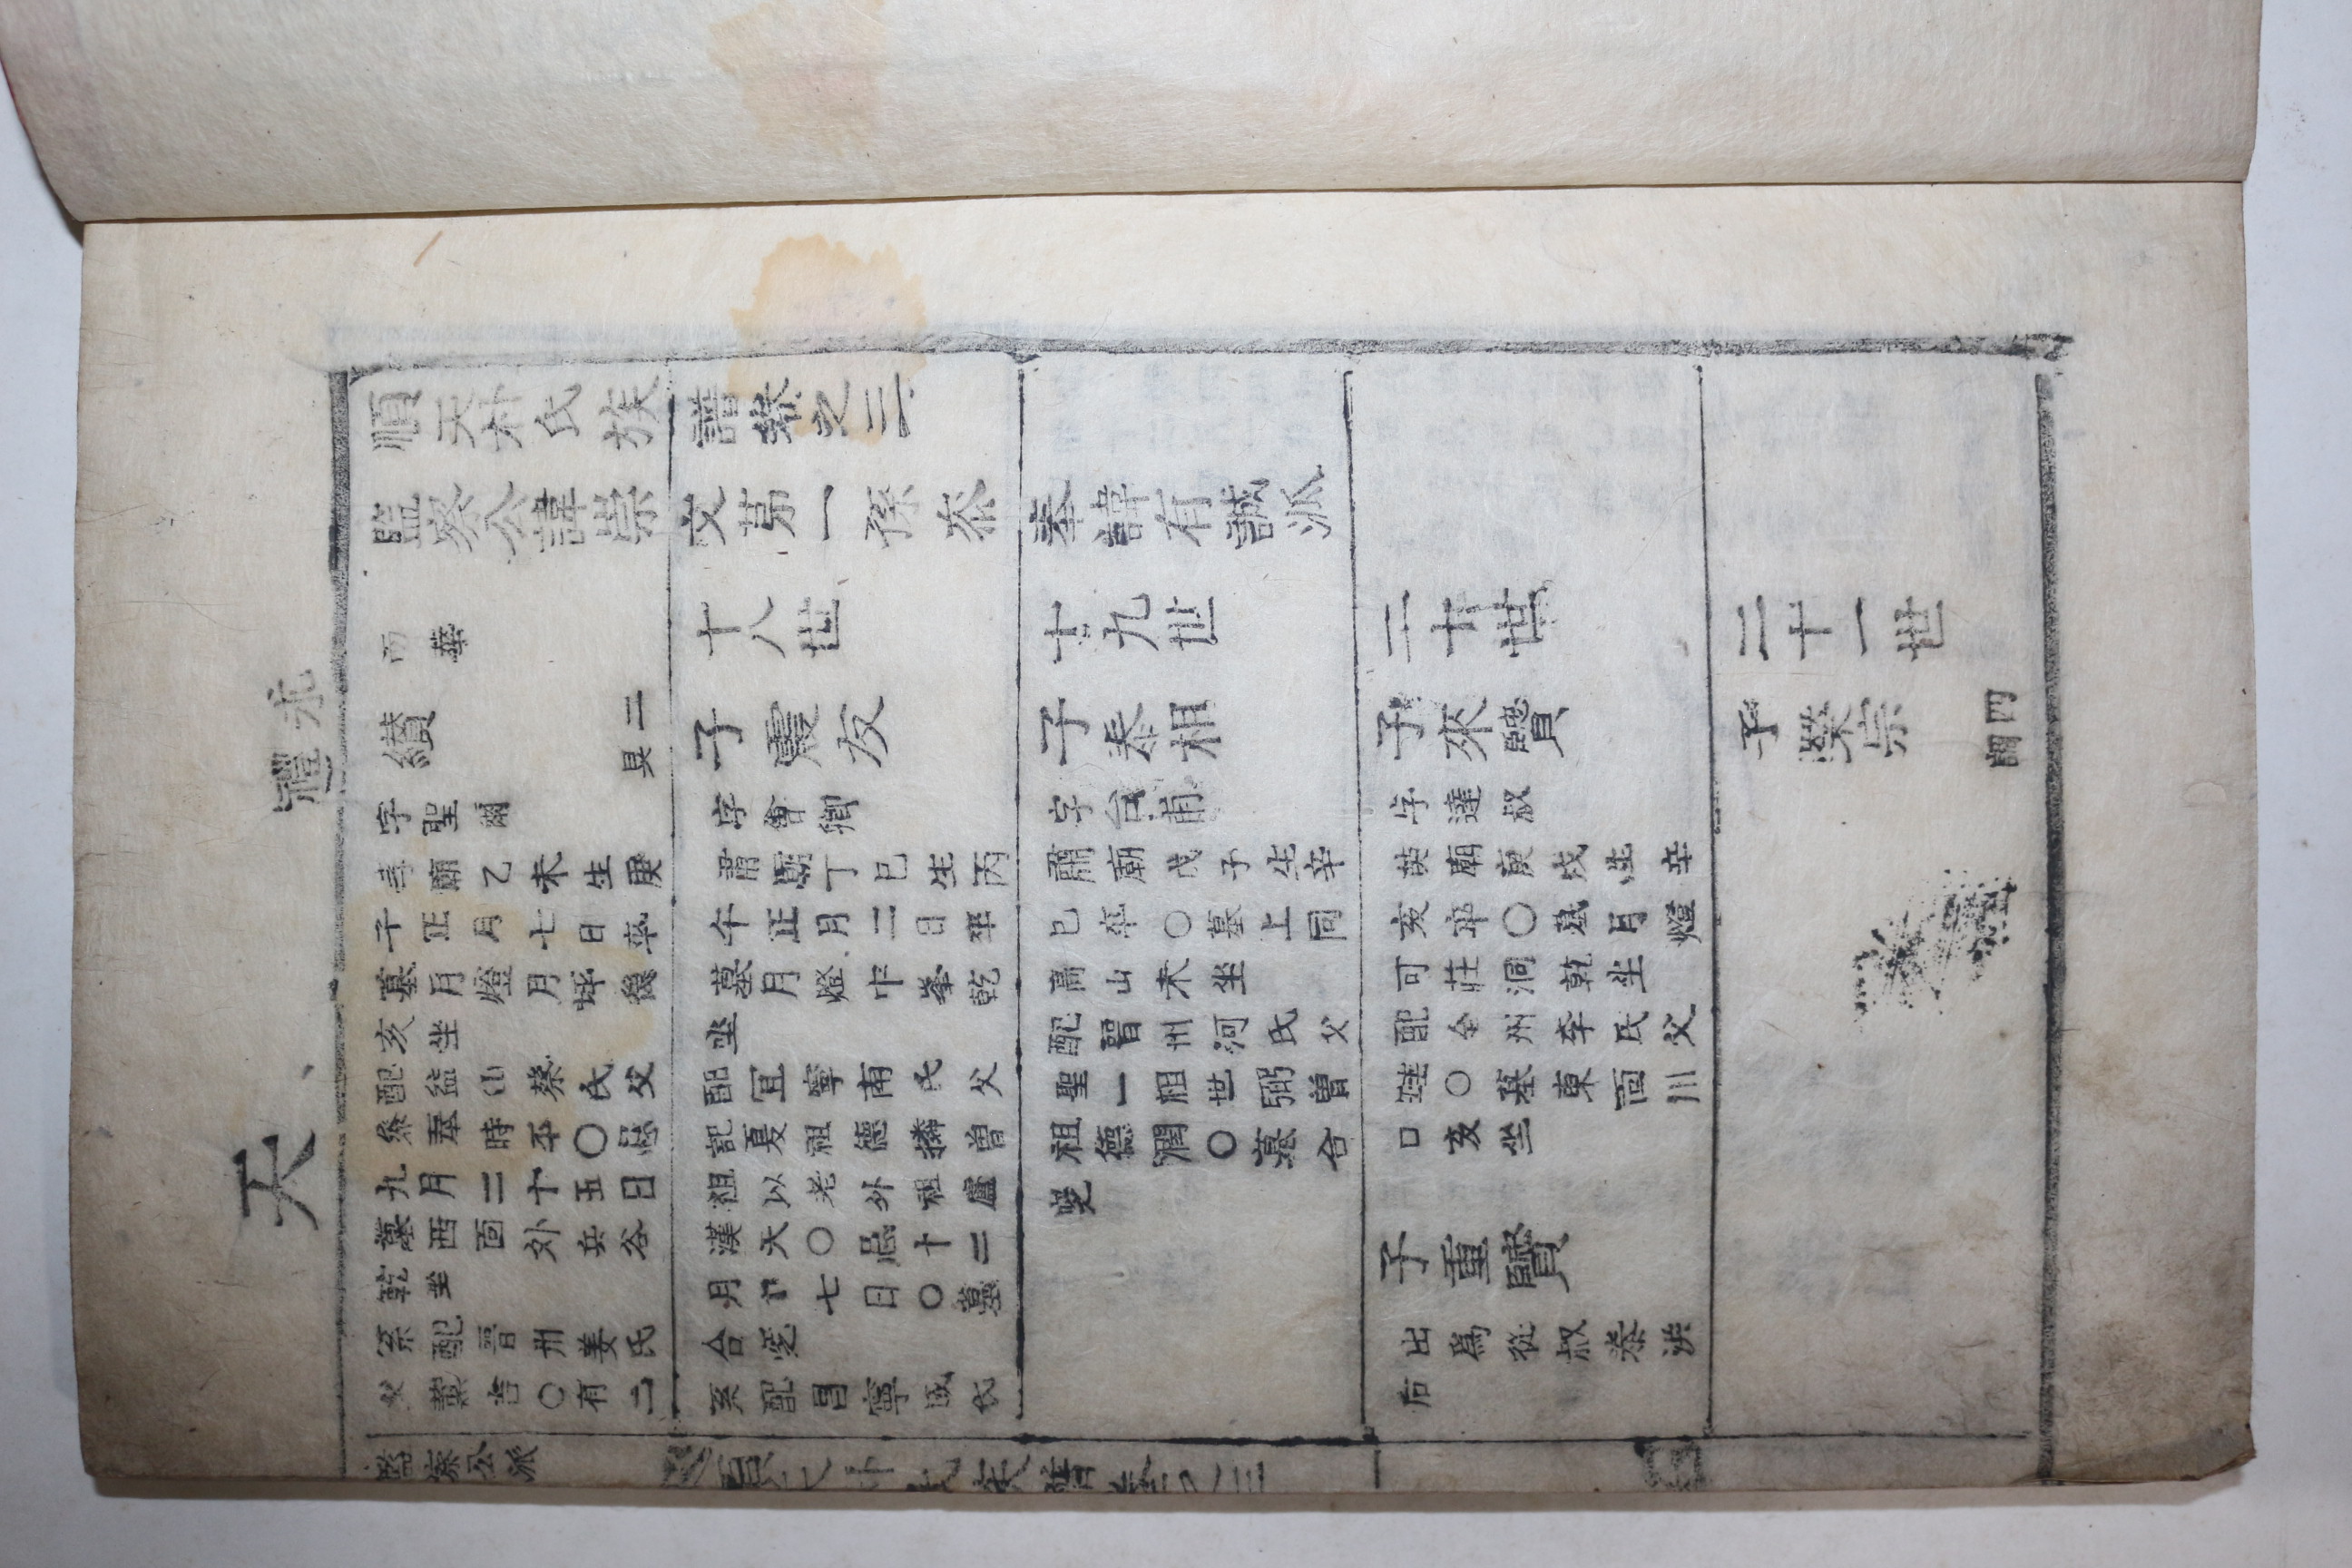 禮
天
順天朴氏族譜卷之三
監察公諱崇文第一孫叅奉諱有誠派
而華
纉
二
字聖爾
孝廟乙未生庚
子正月七日卒
墓月燈月坪後
亥坐
配益山蔡氏父
叅奉時平○忌
九月二十五日
墓西面外兵谷
乾坐
系配晋州姜氏
父 吉○有二
十八世
子震友
字會卿
肅廟丁巳生丙
午正月二日卒
墓月燈中峯乾
坐
配宜寧南氏父
記夏祖德 曾
祖以老外祖盧
漢天○忌十二
月十七日○墓
合窆
系配昌寧成氏
十九世
子泰相
字台甫
肅廟戊子生辛
巳卒○墓上同
高山未坐
配晉州河氏父
聖一祖世弼曽
祖德潤○墓合
窆
二十世
子來贒
字達叔
英廟庚戌生辛
亥卒○墓月燈
可莊洞乾坐
配全州李氏父
○墓東面川
口亥坐
子重贒
出爲從叔泰洪
后
二十一世
子榮宗
四
監察公派
順天朴氏族譜卷之三
一